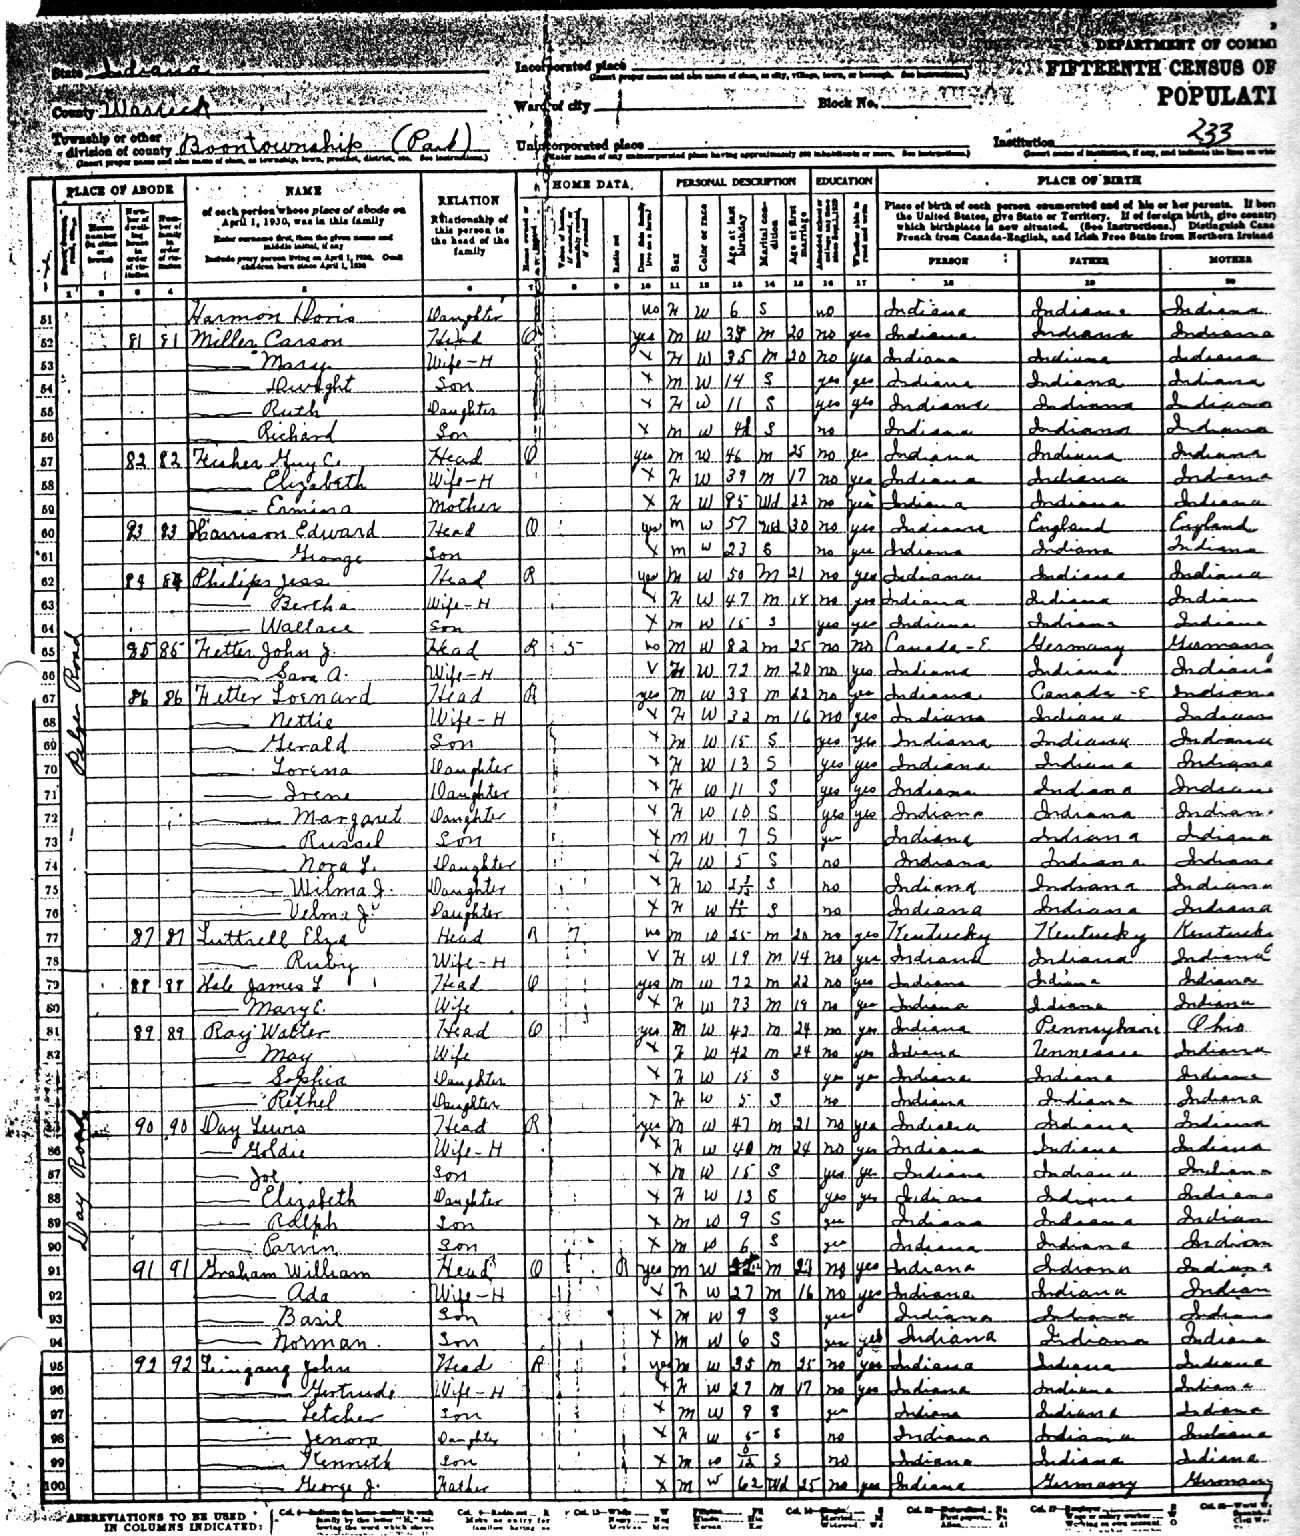 DEPARTMENT OF COMM
FIFTEENTH CENSUS OF
POPULATI
State Indiana
Incorporated place
County Warrick
Ward of city
Block No.
Township or other division of county Boon township (Part)
Unincorporated place
Institution
233
PLACE OF ABODE
NAME
of each person whose place of abode on April 1, 1930, was in this family
Enter surname first, then the given name and middle initial, if any
Include every person living on April 1, 1930. Omit children born since April 1, 1930
RELATION
Relationship of this person to the head of the family
HOME DATA
PERSONAL DESCRIPTION
EDUCATION
PLACE OF BIRTH
Place of birth of each person enumerated and of his or her parents. If born
the United States, give State or Territory. If of foreign birth, give country
which birthplace is now situated. (See Instructions.) Distinguish Cana
French from Canada-English, and Irish Free State from Northern Ireland
Sex
Color or race
Age at last birthday
Marital condition
Age at first marriage
PERSON
FATHER
MOTHER
Pelzer Road
Day Road
51 Harmon Doris Daughter no F W 6 S no Indiana Indiana Indiana
52 81 81 Miller Carson Head O yes M W 38 M 20 no yes Indiana Indiana Indiana
53 Mary Wife-H X F W 35 M 20 no yes Indiana Indiana Indiana
54 Dwight Son X M W 14 S yes yes Indiana Indiana Indiana
55 Ruth Daughter X F W 11 S yes yes Indiana Indiana Indiana
56 Richard Son X M W S no Indiana Indiana Indiana
57 82 82 Fisher Guy C. Head O yes M W 46 M 25 no yes Indiana Indiana Indiana
58 Elizabeth Wife-H X F W 39 M 17 no yes Indiana Indiana Indiana
59 Ermina Mother X F W 85 Wd 22 no yes Indiana Indiana Indiana
60 83 83 Harrison Edward Head O yes M W 57 Wd 30 no yes Indiana England England
61 George Son X M W 23 S no yes Indiana Indiana Indiana
62 84 84 Philips Jess Head R yes M W 50 M 21 no yes Indiana Indiana Indiana
63 Bertha Wife-H X F W 47 M 18 no yes Indiana Indiana Indiana
64 Wallace Son X M W 15 S yes yes Indiana Indiana Indiana
65 85 85 Fetter John J. Head R 5 no M W 82 M 25 no no Canada-E Germany Germany
66 Sara A. Wife-H V F W 72 M 20 no yes Indiana Indiana Indiana
67 86 86 Fetter Leonard Head R yes M W 38 M 22 no yes Indiana Canada-E Indiana
68 Nettie Wife-H X F W 32 M 16 no yes Indiana Indiana Indiana
69 Gerald Son X M W 15 S yes yes Indiana Indiana Indiana
70 Lorena Daughter X F W 13 S yes yes Indiana Indiana Indiana
71 Irene Daughter X F W 11 S yes yes Indiana Indiana Indiana
72 Margaret Daughter X F W 10 S yes yes Indiana Indiana Indiana
73 Russel Son X M W 7 S yes Indiana Indiana Indiana
74 Nora L. Daughter X F W 5 S no Indiana Indiana Indiana
75 Wilma J. Daughter X F W S no Indiana Indiana Indiana
76 Velma J. Daughter X F W S no Indiana Indiana Indiana
77 87 87 Luttrell Elza Head R 7 no M W 25 M 20 no yes Kentucky Kentucky Kentuck
78 Ruby Wife-H V F W 19 M 14 no yes Indiana Indiana Indiana
79 88 88 Hale James L Head O yes M W 72 M 22 no yes Indiana Indiana Indiana
80 Mary E. Wife X F W 73 M 19 no yes Indiana Indiana Indiana
81 89 89 Ray Walter Head O yes M W 42 M 24 no yes Indiana Pennsylvani Ohio
82 May Wife X F W 42 M 24 no yes Indiana Tennessee Indiana
Sophia Daughter X F W 15 S yes yes Indiana Indiana Indiana
Rethel Daughter X F W 5 S no Indiana Indiana Indiana
90 90 Day Lewis Head R yes M W 47 M 21 no yes Indiana Indiana Indiana
86 Goldie Wife-H X F W 40 M 24 no yes Indiana Indiana Indiana
87 Joe Son X M W 15 S yes yes Indiana Indiana Indiana
88 Elizabeth Daughter X F W 13 S yes yes Indiana Indiana Indiana
89 Ralph Son X M W 9 S yes Indiana Indiana Indian
90 Parvin Son X M W 6 S yes Indiana Indiana Indian
91 91 91 Graham William Head O R yes M W M no yes Indiana Indiana Indiana
92 Ada Wife-H X F W 27 M 16 no yes Indiana Indiana Indian
93 Basil Son X M W 9 S yes Indiana Indiana Indiana
94 Norman Son X M W 6 S yes yes Indiana Indiana Indiana
95 92 92 Leingang John Head R yes M W 35 M 25 no yes Indiana Indiana Indiana
96 Gertrude Wife-H X F W 27 M 17 no yes Indiana Indiana Indiana
97 Letcher Son X M W 8 S yes Indiana Indiana Indiana
98 Jenora Daughter X F W 5 S no Indiana Indiana Indiana
99 Kenneth Son X M W S no Indiana Indiana Indiana
100 George J. Father X M W 62 Wd 25 no yes Indiana Germany Germany
ABBREVIATIONS TO BE USED
IN COLUMNS INDICATED: